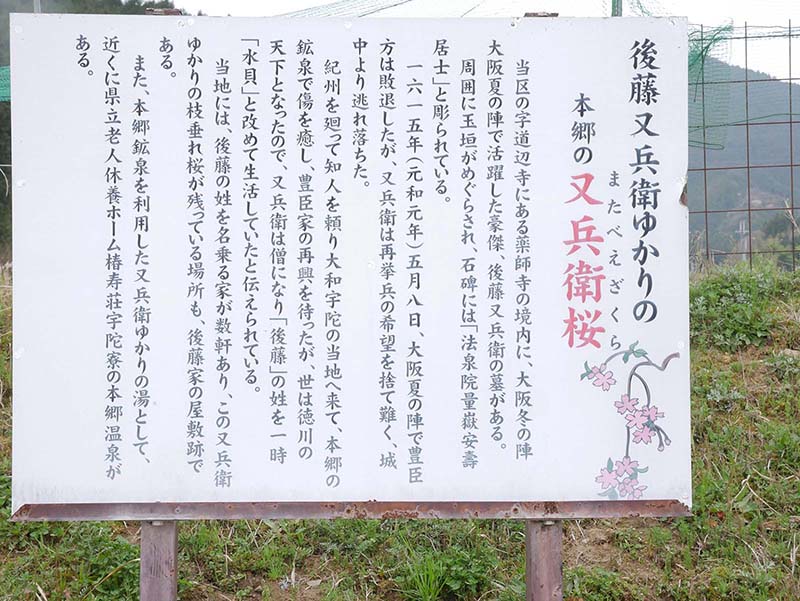 後藤又兵衛ゆかりの
本郷の又兵衛桜
またべえざくら
当区の字道辺寺にある薬師寺の境内に、大阪冬の陣
大阪夏の陣で活躍した豪傑、後藤又兵衛の墓がある。
周囲に玉垣がめぐらされ、石碑には「法泉院量嶽安壽
居士」と彫られている。
一六一五年(元和元年)五月八日、大阪夏の陣で豊臣
方は敗退したが、又兵衛は再挙兵の希望を捨て難く、城
中より逃れ落ちた。
紀州を廻って知人を頼り大和宇陀の当地へ来て、本郷の
鉱泉で傷を癒し、豊臣家の再興を待ったが、世は徳川の
天下となったので、又兵衛は僧になり「後藤」の姓を一時
「水貝」と改めて生活していたと伝えられている。
当地には、後藤の姓を名乗る家が数軒あり、この又兵衛
ゆかりの枝垂れ桜が残っている場所も、後藤家の屋敷跡で
ある。
また、本郷鉱泉を利用した又兵衛ゆかりの湯として、
近くに県立老人休養ホーム椿寿荘宇陀寮の本郷温泉が
ある。